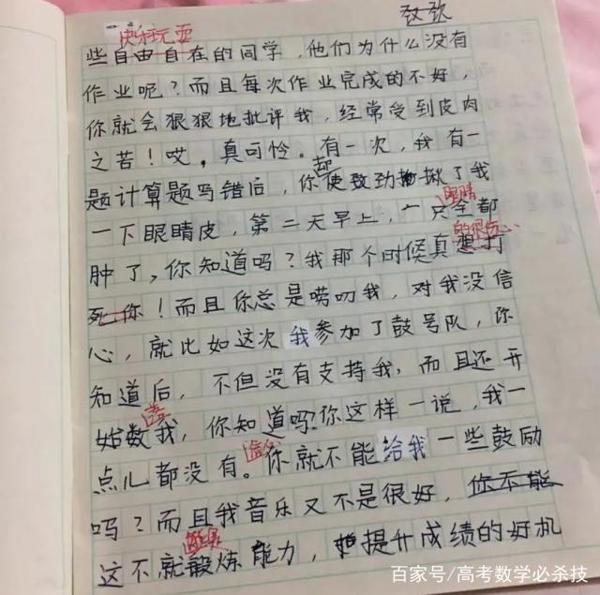 些自由自在的同学,他们为什么没有
作业呢?而且每次作业完成的不好,
你就会狠狠地批评我,经常受到皮肉
之苦!哎。真可怜。有一次,我有一
题计算题写错后,你使劲揪了我
眼睛
一下眼睛皮,第二天早上,一只全都
的很伤心
肿了,你知道吗?我那个时候真想打
死你!而且你总是唠叨我,对我没信
心,就比如这次我参加了鼓号队,你
知道后,不但没有支持我,而且还开
始数我,你知道吗?你这样一说,我一
点儿都没有。你就不能给我一些鼓励
吗?而且我音乐又不是很好,你不能
这不就锻炼能力,提升成绩的好机
百家号/高考数学必杀技